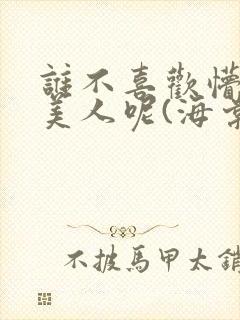 誰不喜歡懵
美人呢(海
不披馬甲太